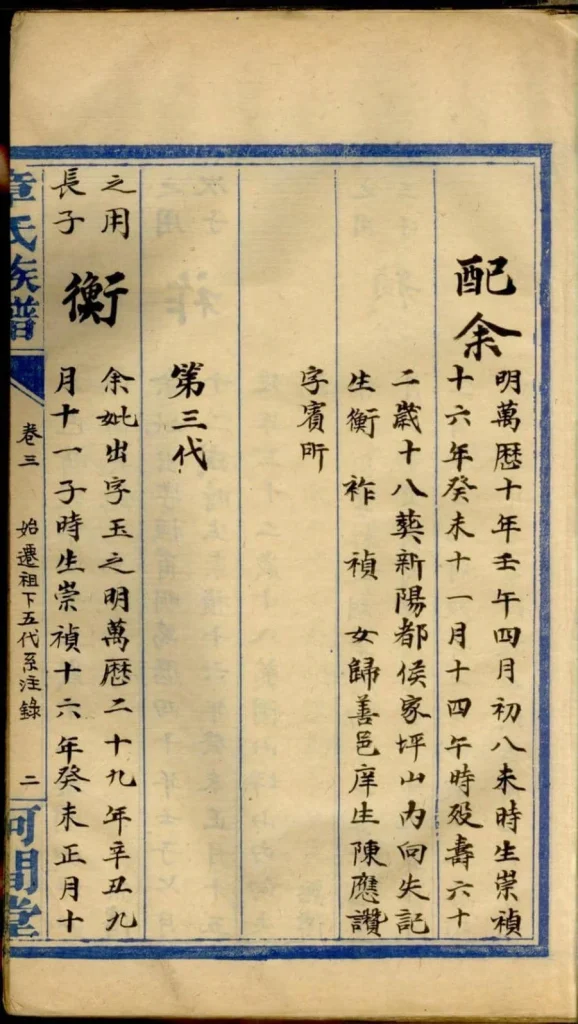 配余
明萬暦十年壬午四月初八未時生崇禎
十六年癸未十一月十四午時殁壽六十
二歲十八葬新陽都侯家坪山內向失記
生衡 祚 禎 女歸善邑庠生陳應讚
字賓所
第三代
之用
長子
衡
余妣出字玉之明萬暦二十九年辛丑九
月十一子時生崇禎十六年癸未正月十
章氏族譜
卷三
始遷祖下五代系注錄
二
河間堂